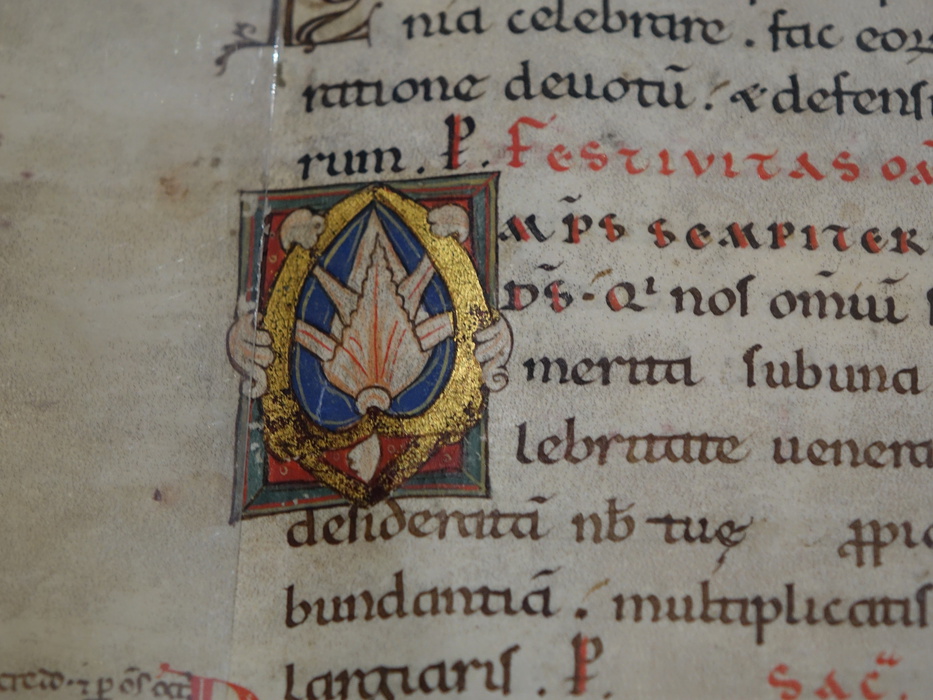 nia celebrare . fac eoꝝ
ratione deuotū . & defens
rum . P . FESTIVITAS OM̄
O
MP̄S SEMPITER
D̄S · Qⁱ nos om̄iū s
merita sub una
lebritate uenera
desideratā nb̄ tuę ꝓpi
bundantiā . multiplicatis
largiaris . P . SAC̄